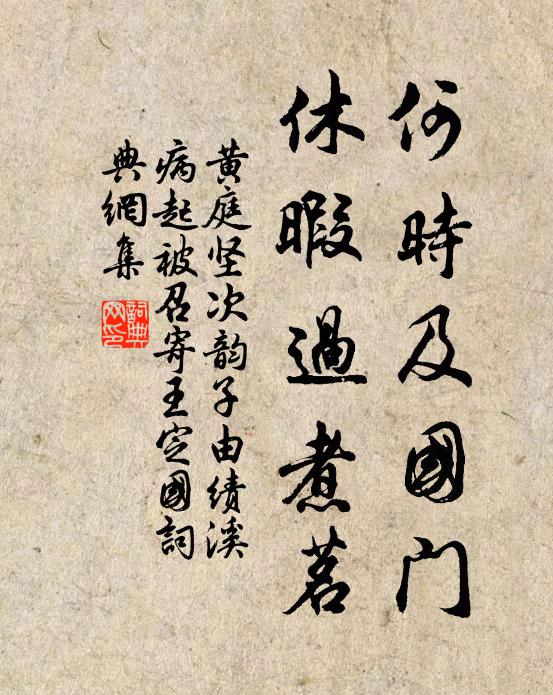 何時及國门
休暇過煮茗
黄庭坚次韵子由绩溪
病起被召寄王定國詞
典網集
詞典
网印